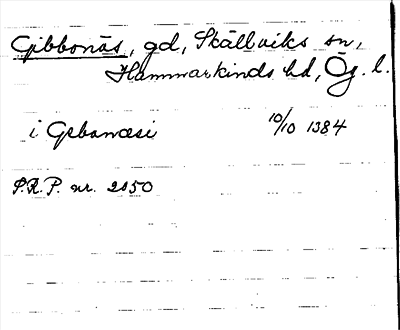 Gibbonäs, gd, Skällviks sn,
Hammarkinds hd, Ög. l.
i Gebonæsi 10/10 1384
S.R.P. nr. 2050